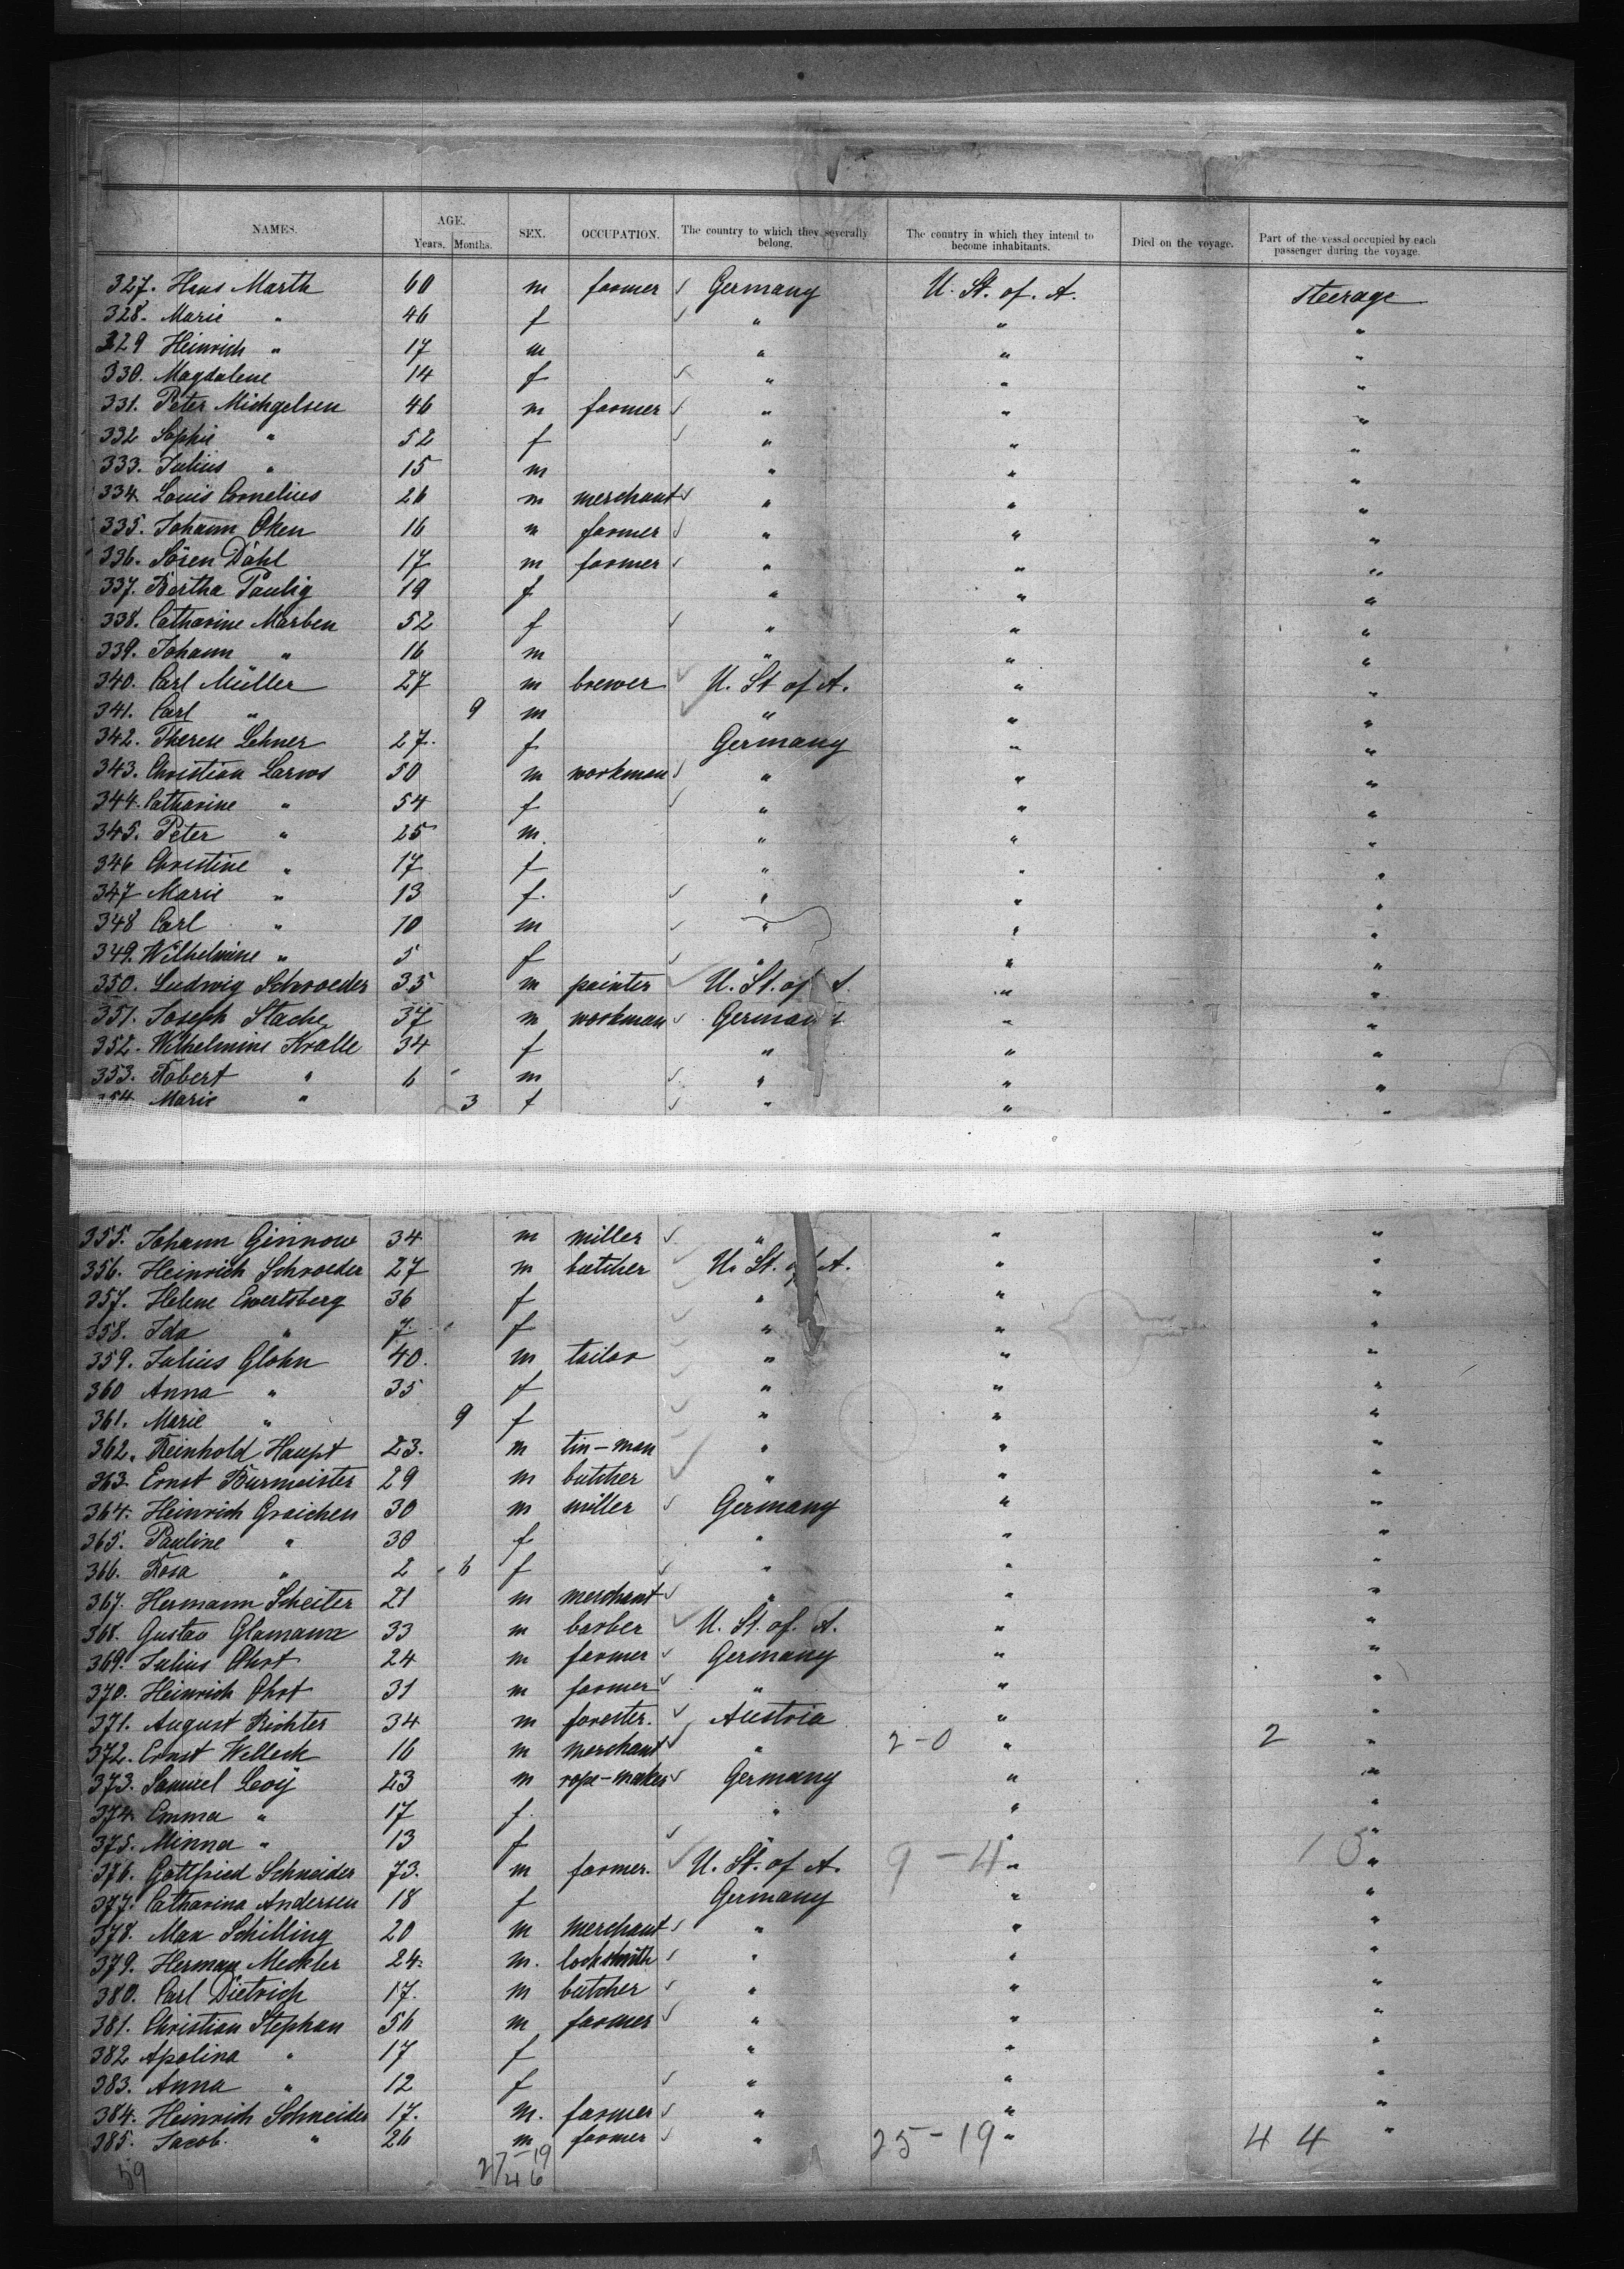 NAMES. AGE. Years. Months. SEX. OCCUPATION. The country to which they severally belong. The country in which they intend to become inhabitants. Died on the voyage. Part of the vessel occupied by each passenger during the voyage.
327. Hans Marth 60 m farmer ✓ Germany U. St. of. A. Steerage
328. Marie " 46 f ✓ " " "
329 Heinrich " 17 m " " "
330. Magdalene 14 f ✓ " " "
331. Peter Michgelsen 46 m farmer ✓ " " "
332 Sophie " 52 f ✓ " " "
333. Julius " 15 m " " "
334. Louis Cornelius 26 m merchant ✓ " " "
335. Johann Oken 16 m farmer ✓ " " "
336. Sören Dahl 17 m farmer ✓ " " "
337. Bertha Paulig 19 f " " "
338. Catharine Marben 52 f ✓ " " "
339. Johann " 16 m " " "
340. Carl Müller 27 m brewer ✓ U. St of A. " "
341. Carl " 9 m ✓ " " "
342. Therese Lehner 27. f Germany " "
343. Christian Larws 50 m workman ✓ " " "
344. Catharine " 54 f ✓ " " "
345. Peter " 25 m. " " "
346 Christine " 17 f " " "
347 Marie " 13 f. ✓ " " "
348 Carl " 10 m ✓ " " "
349. Wilhelmine " 5 f ✓ " " "
350. Ludwig Schroeder 35 m painter ✓ U. St. of A. " "
351. Joseph Stache 37 m workman ✓ Germany " "
352. Wilhelmine Kralle 34 f " " "
353. Robert " 6 m ✓ " " "
354. Marie " 3 f ✓ " " "
355. Johann Ginnow 34 m miller ✓ " " "
356. Heinrich Schroeder 27 m butcher ✓ U. St. of A. " "
357. Helene Ewertsberg 36 f ✓ " " "
358. Ida " 7. f ✓ " " "
359. Julius Glohn 40. m tailor ✓ " " "
360 Anna " 35 f ✓ " " "
361. Marie " 9 f ✓ " " "
362. Reinhold Haupt 23. m tin-man ✓ " " "
363. Ernst Burmeister 29 m butcher ✓ " " "
364. Heinrich Graichen 30 m miller ✓ Germany " "
365. Pauline " 30 f " " "
366. Rosa " 2 6 f ✓ " " "
367. Hermann Scheiter 21 m merchant ✓ " " "
368. Gustav Glamann 33 m barber ✓ U. St. of. A. " "
369. Julius Ohrt 24 m farmer ✓ Germany " "
370. Heinrich Ohrt 31 m farmer ✓ " " "
371. August Richter 34 m forester. ✓ Austria " "
372. Ernst Welleck 16 m merchant ✓ " 2-0 " 2 "
373. Samuel Levy 23 m rope-maker ✓ Germany " "
374. Emma " 17 f. " " "
375. Minna " 13 f ✓ " " "
376. Gottfried Schneider 73. m farmer. ✓ U. St. of A. 9-4 " 13 "
377. Catharina Andersen 18 f Germany " "
378. Max Schilling 20 m merchant ✓ " " "
379. Herman Meckler 24. m. locksmith ✓ " " "
380. Carl Dietrich 17. m butcher ✓ " " "
381. Christian Stephan 56 m farmer ✓ " " "
382 Apolina " 17 f " " "
383. Anna " 12 f ✓ " " "
384. Heinrich Schneider 17. m. farmer ✓ " " "
385. Jacob. " 26 m farmer ✓ " 25-19 " 44 "
59 27-19
46